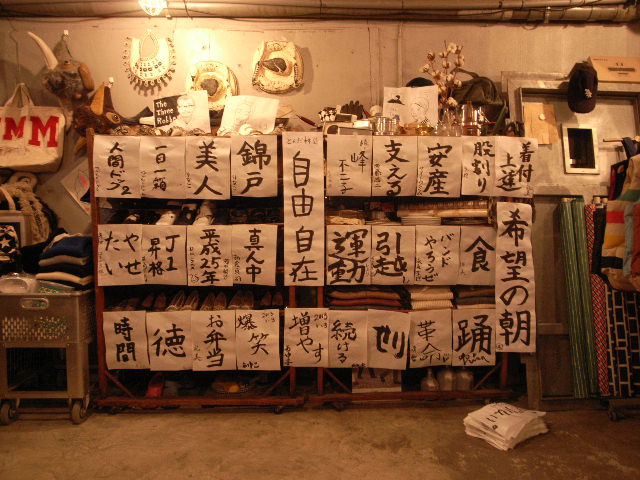 The Three
MM
人間ドック2
一日一箱
美人
錦戸
自由自在
峰
不二子
支える
安産
股割り
着付
上達
やせ
たい
J1
昇格
平成
25年
真ん中
運動
引越し
バンド
やろうぜ
食
希望の朝
時間
徳
お弁当
爆笑
増やす
続ける
革命
踊